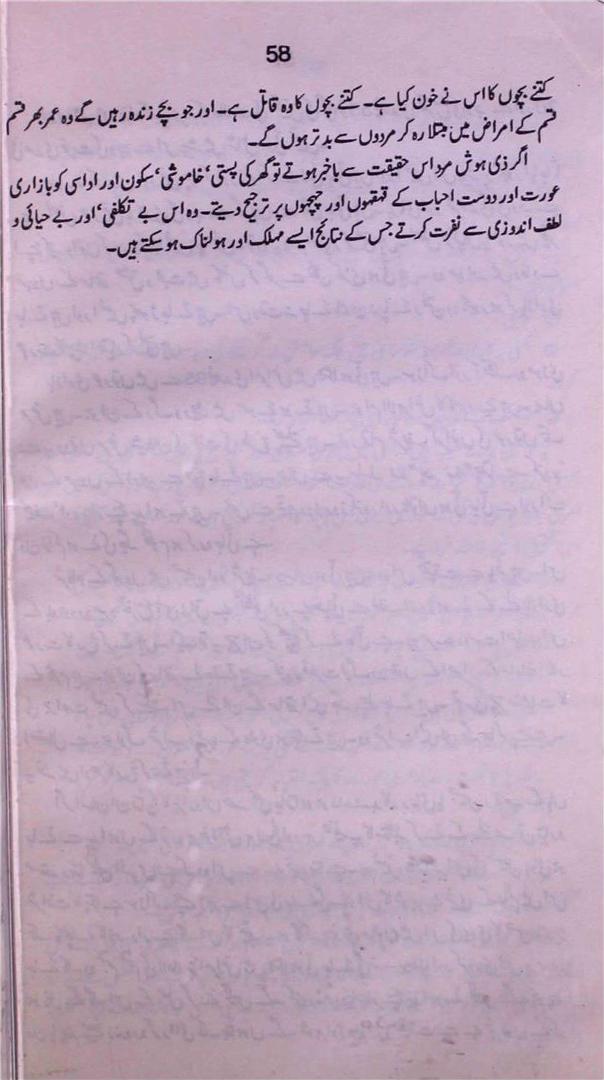 58
کتنے بچوں کا اس نے خون کیا ہے۔ کتنے بچوں کا وہ قاتل ہے۔ اور جو بچے زندہ رہیں گے وہ عمر بھر قسم
قسم کے امراض میں مبتلا رہ کر مردوں سے بدتر ہوں گے۔
اگر ذی ہوش مرد اس حقیقت سے باخبر ہوتے تو گھر کی پستی، خاموشی، سکون اور اداسی کو بازاری
عورت اور دوست احباب کے قہقہوں اور چہچوں پر ترجیح دیتے۔ وہ اس بے تکلفی، اور بے حیائی و
لطف اندوزی سے نفرت کرتے جس کے نتائج ایسے مہلک اور ہولناک ہو سکتے ہیں۔